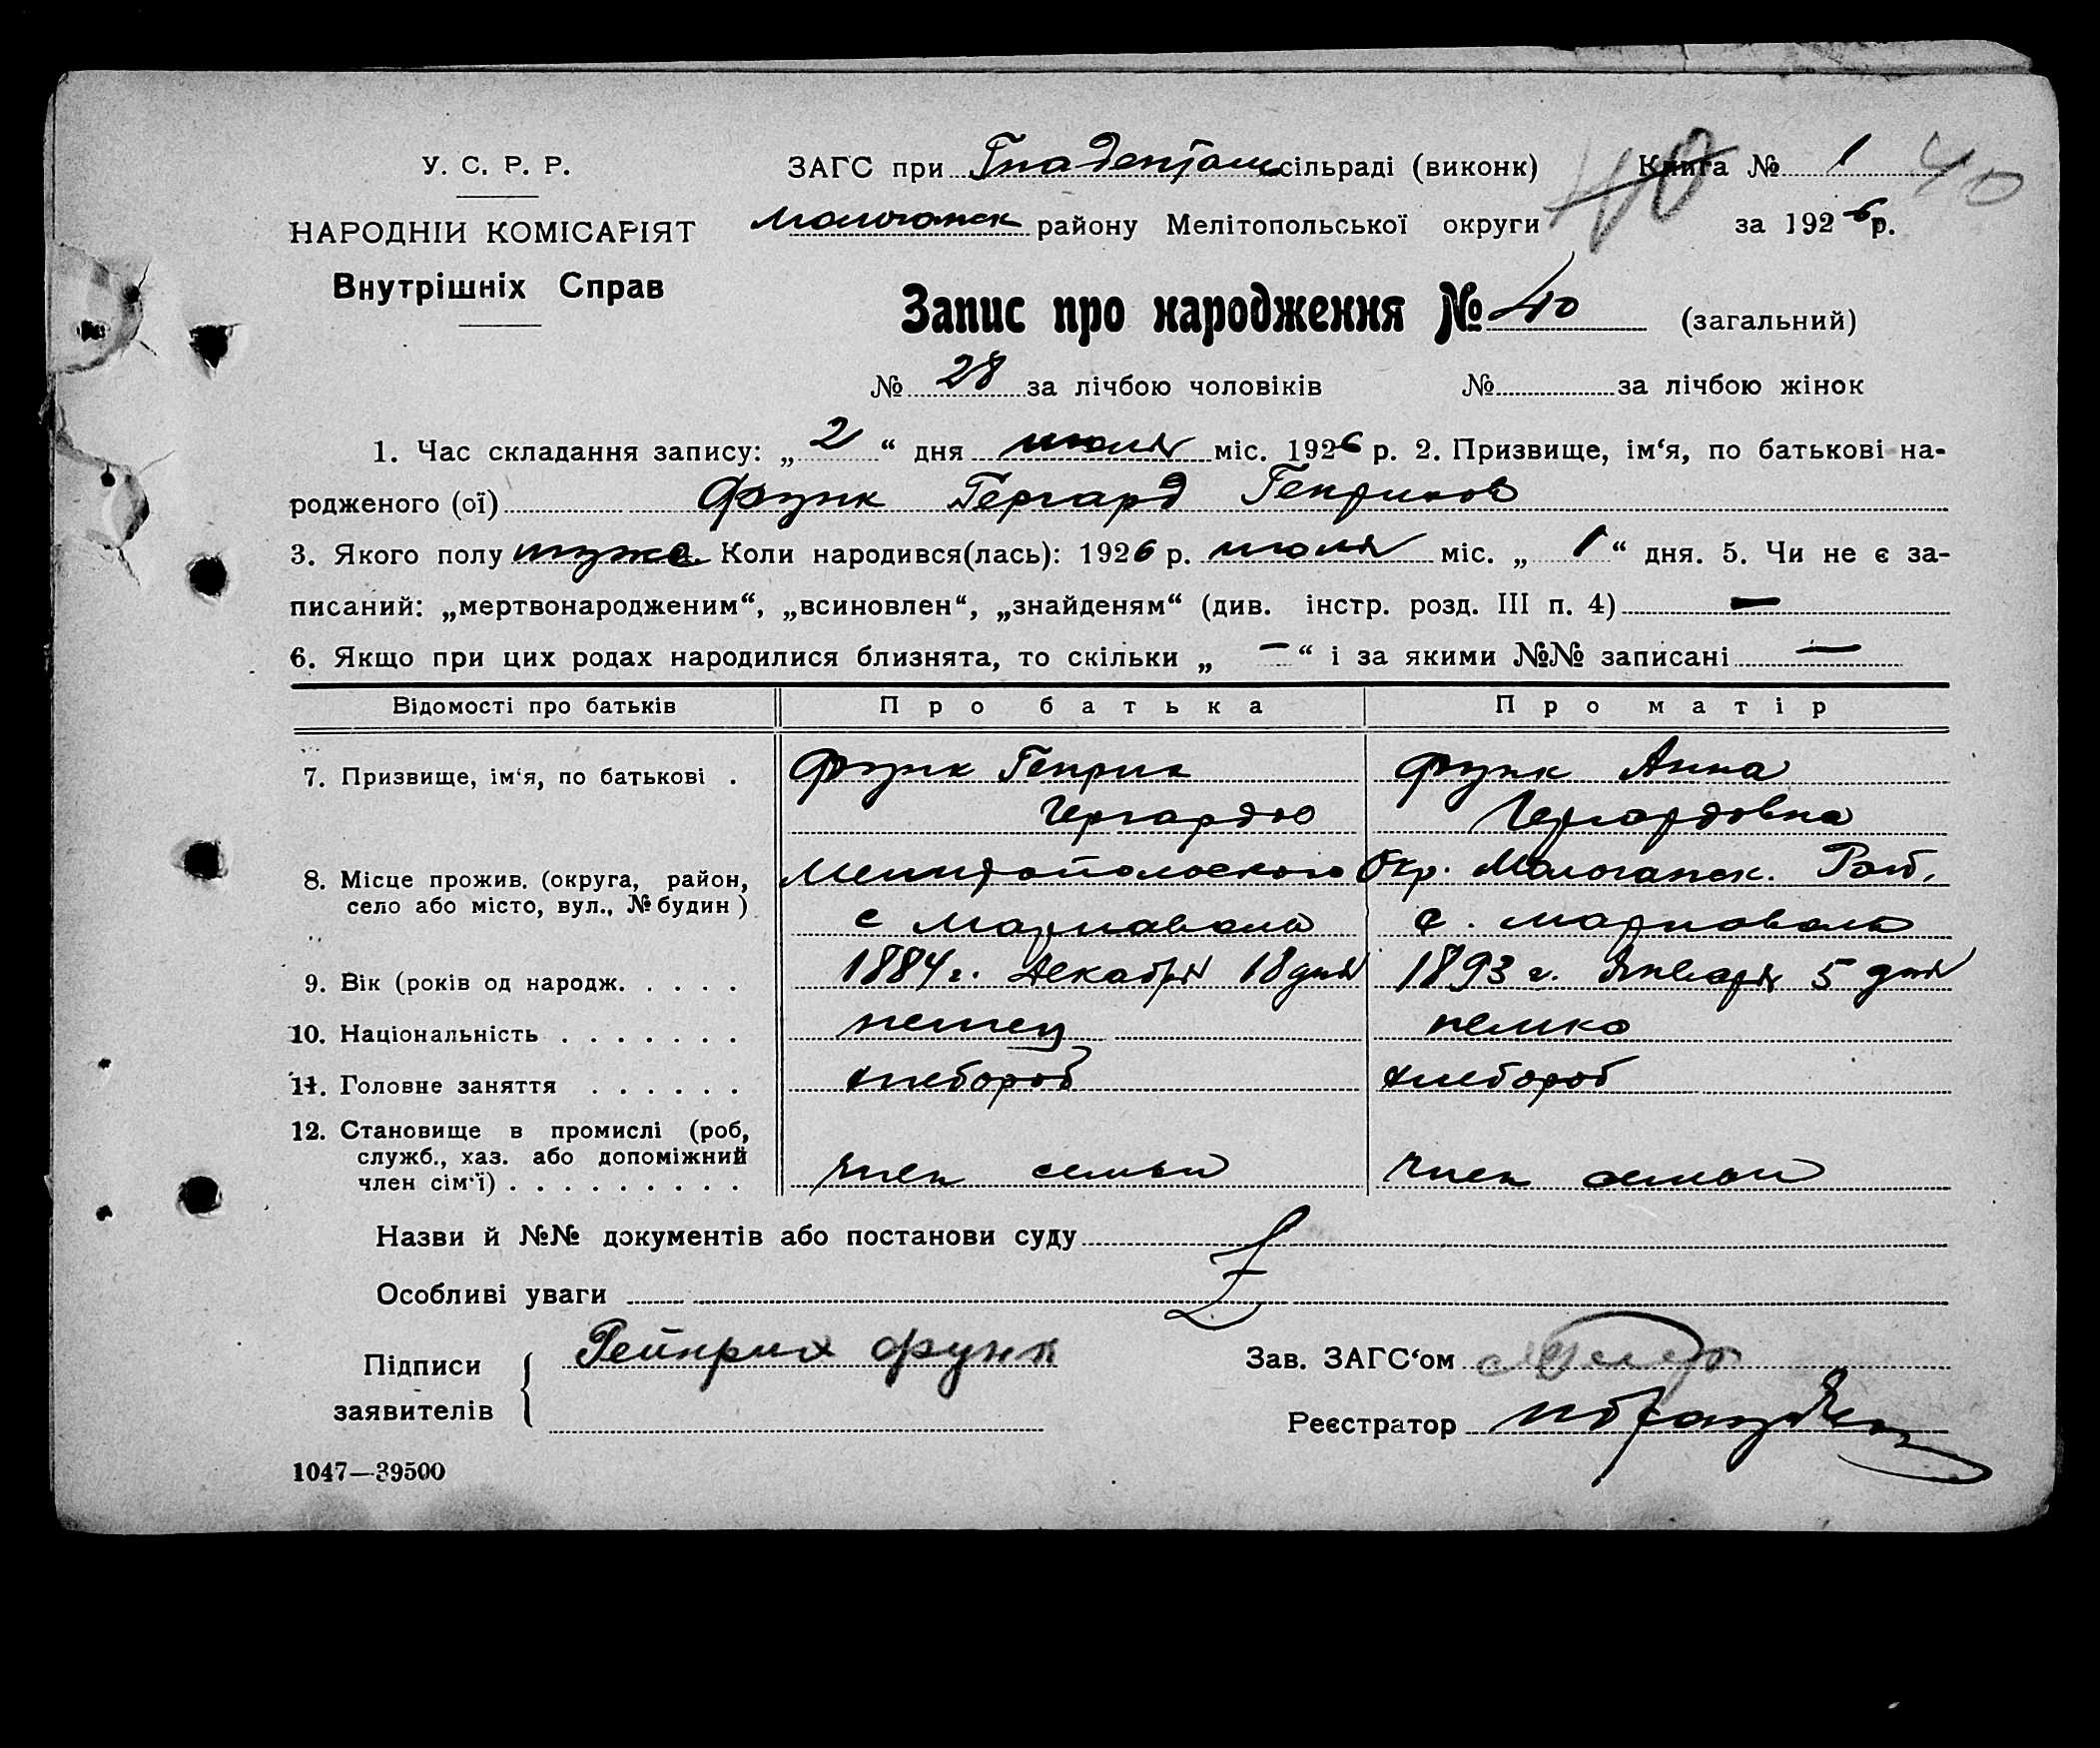 У. С. Р. Р.
НАРОДНІЙ КОМІСАРІЯТ
Внутрішніх Справ
ЗАГС при Гнаденталь сільраді (виконк) 40 Книга № 1 40
Молочанск району Мелітопольської округи за 1926 р.
Запис про народження № 40 (загальний)
№ 28 за лічбою чоловіків № за лічбою жінок
1. Час складання запису: „ 2 “ дня июля міс. 1926 р. 2. Призвище, ім‘я, по батькові на-
родженого (ої) Функ Гергард Генрихов
3. Якого полу мужс. Коли народився(лась): 1926 р. июля міс. „ 1 “ дня. 5. Чи не є за-
писаний: „мертвонародженим“, „всиновлен“, „знайденям“ (див. інстр. розд. III п. 4) —
6. Якщо при цих родах народилися близнята, то скільки „ — “ і за якими №№ записані —
Відомості про батьків Про батька Про матір
7. Призвище, ім‘я, по батькові . Функ Генрих Функ Анна
Гергардов Гергардовна
8. Місце прожив. (округа, район, Мелитопольского Окр. Молочанск. Рай.
село або місто, вул., № будин) с Мариаваль с. Мариоваль
9. Вік (років од народж. . . . . 1884 г. Декабря 18 дня 1893 г. Января 5 дня
10. Національність . . . . . . . немец немка
11. Головне заняття . . . . . . хлебороб хлебороб
12. Становище в промислі (роб,
служб., хаз. або допоміжний
член сім‘ї) . . . . . . . . . член семьи член семьи
Назви й №№ документів або постанови суду
Особливі уваги
Підписи Гейнрих Функ
заявителів
Зав. ЗАГС‘ом
Реєстратор
1047—39500